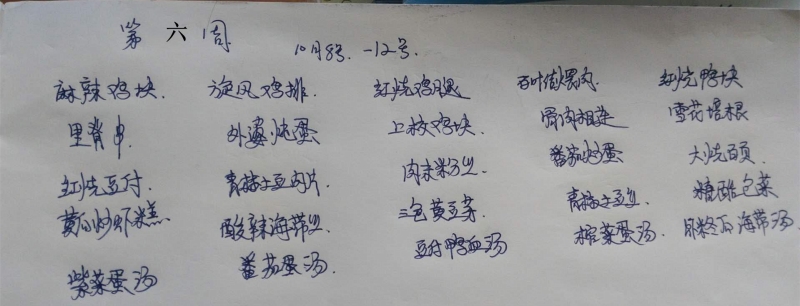 第六周 10月8号.-12号.
麻辣鸡块. 旋风鸡排. 红烧鸡腿 百叶结煨肉 红烧鸭块
里脊串 外婆炖蛋 上校鸡块. 骨肉相连 雪花培根
红烧豆付. 青椒干豆肉片 肉末粉丝 番茄炒蛋 大烧百页.
黄瓜炒虾糕 酸辣海带丝 三色黄豆芽. 青椒干豆丝 糖醋包菜
紫菜蛋汤 番茄蛋汤. 豆付鸭血汤 榨菜蛋汤. 海带汤